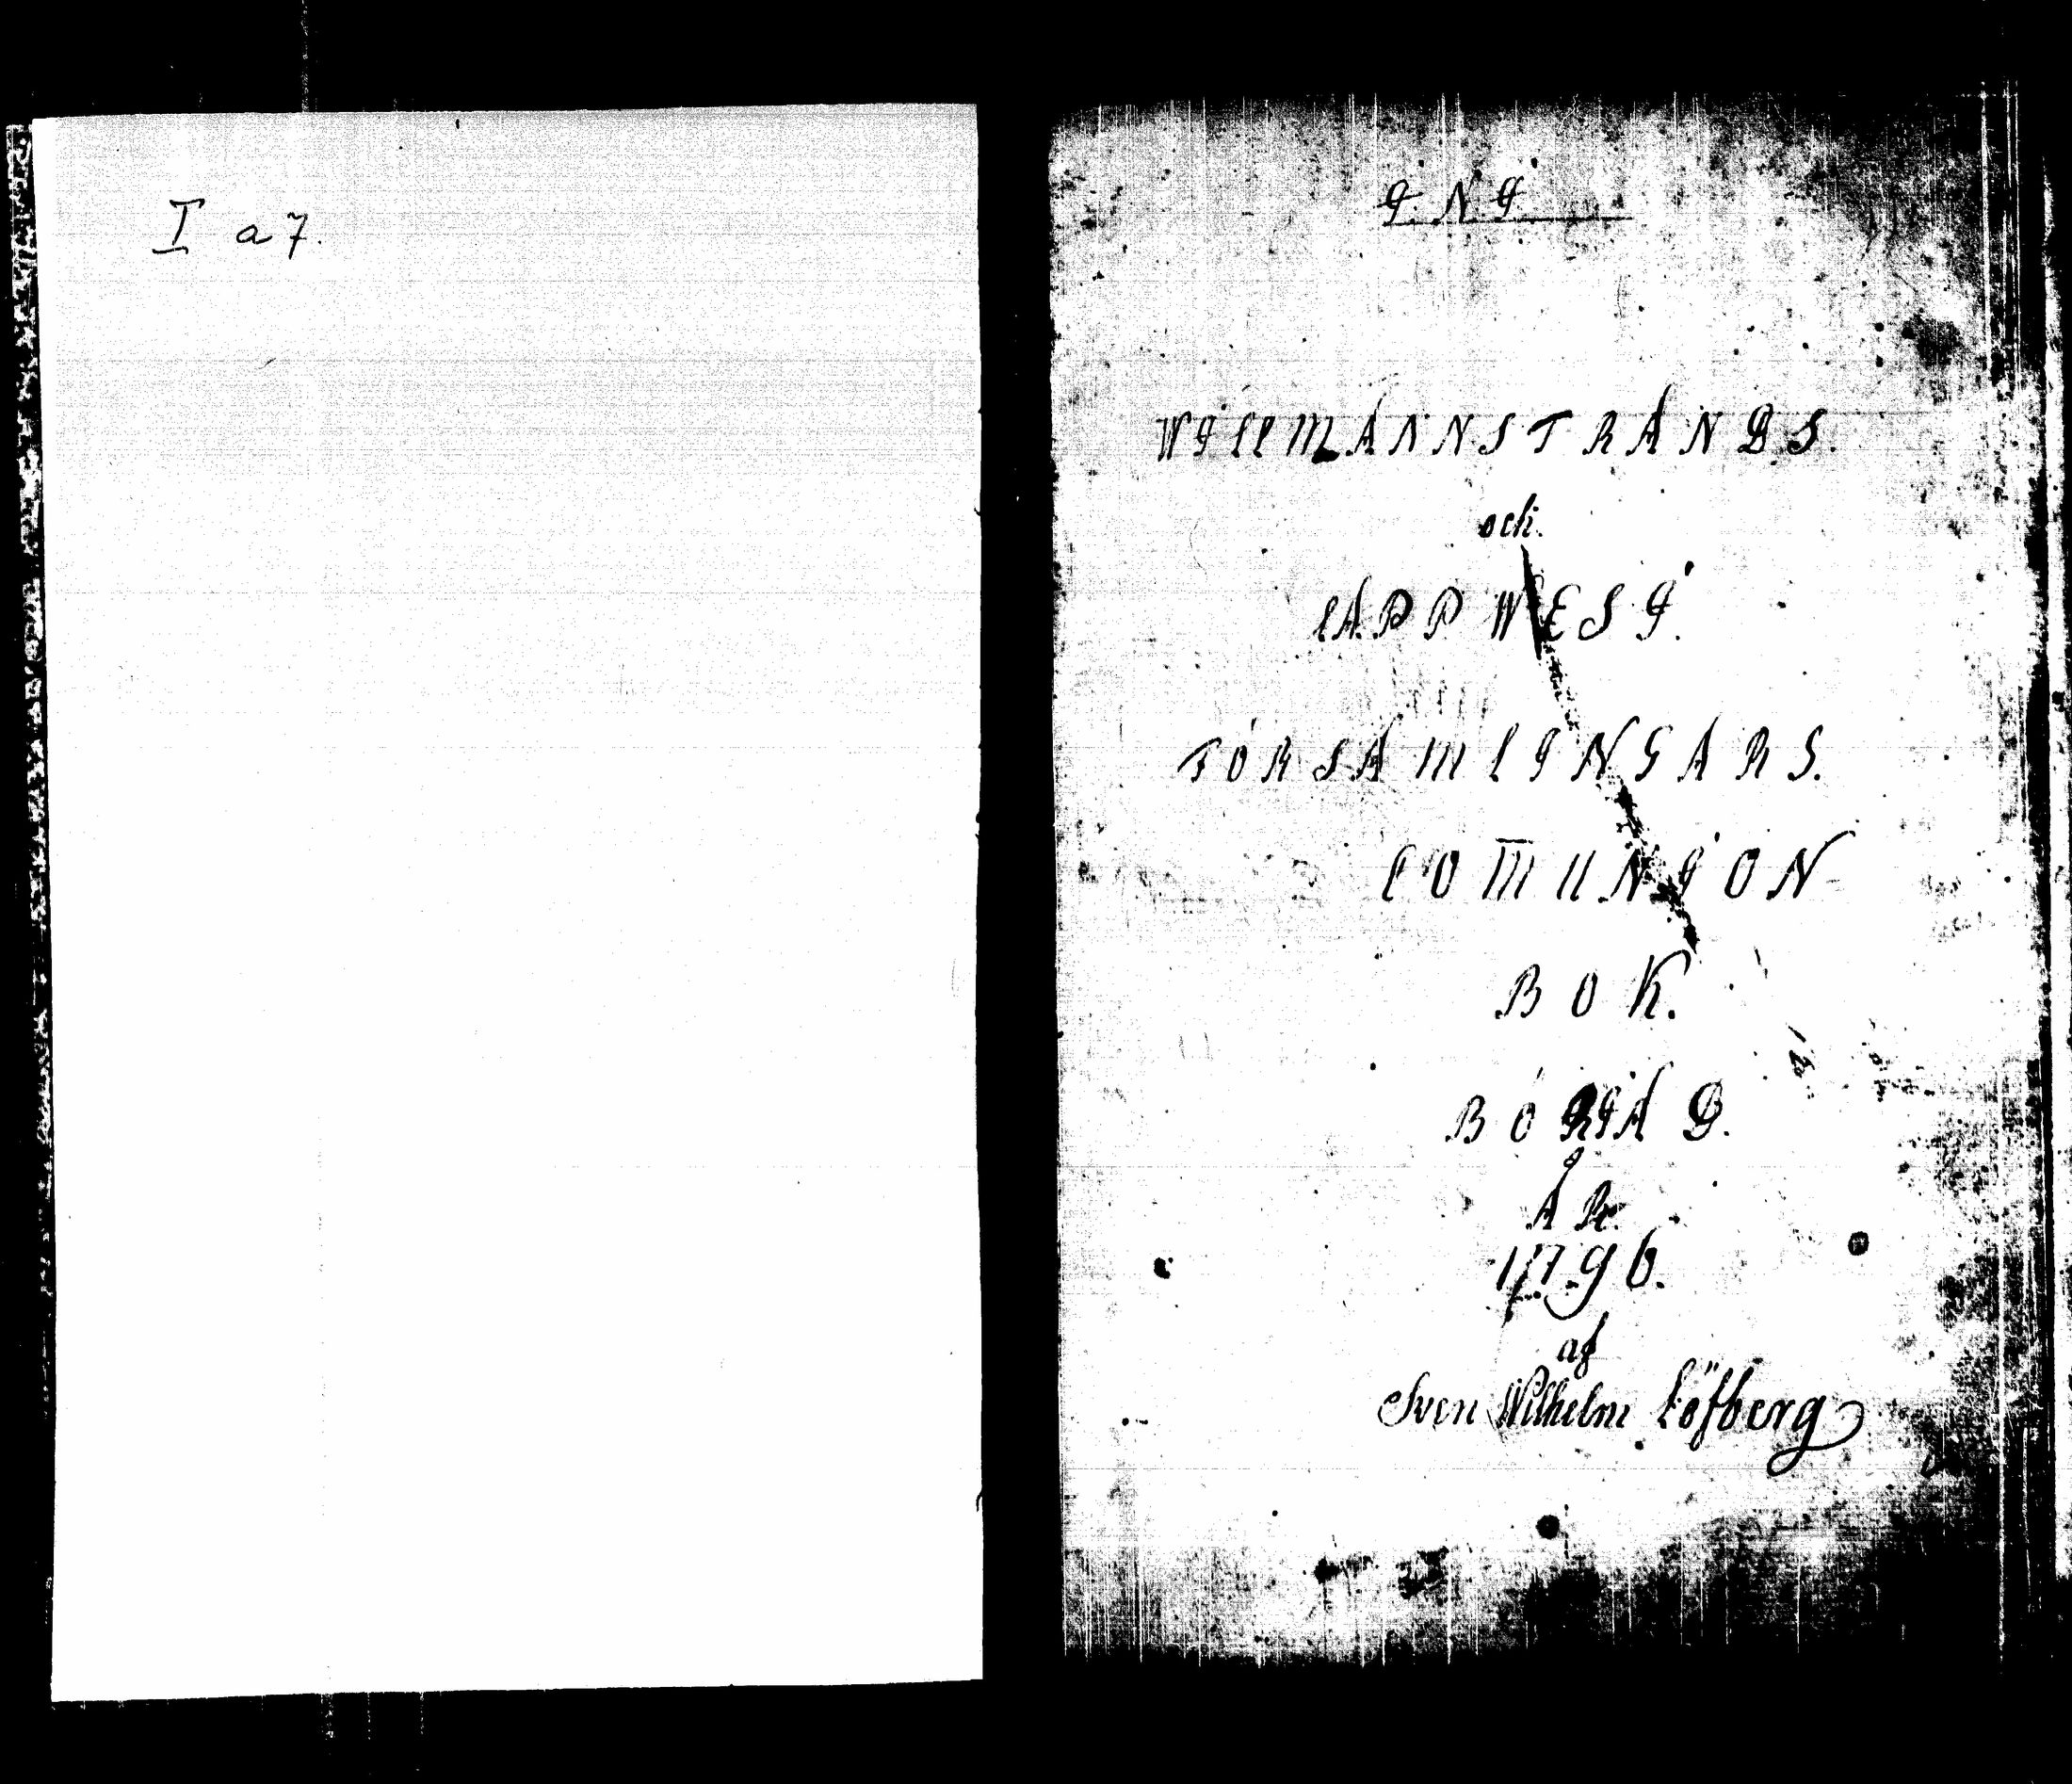 I a 7.
I. N. I.
WILLMANNSTRANDS.
och.
LAPPWESI.
FÖRSAMLINGARS.
COM̅UNION
BOK.
BÖRIAD.
ÅR.
1796.
af
Sven Wilhelm Löfberg